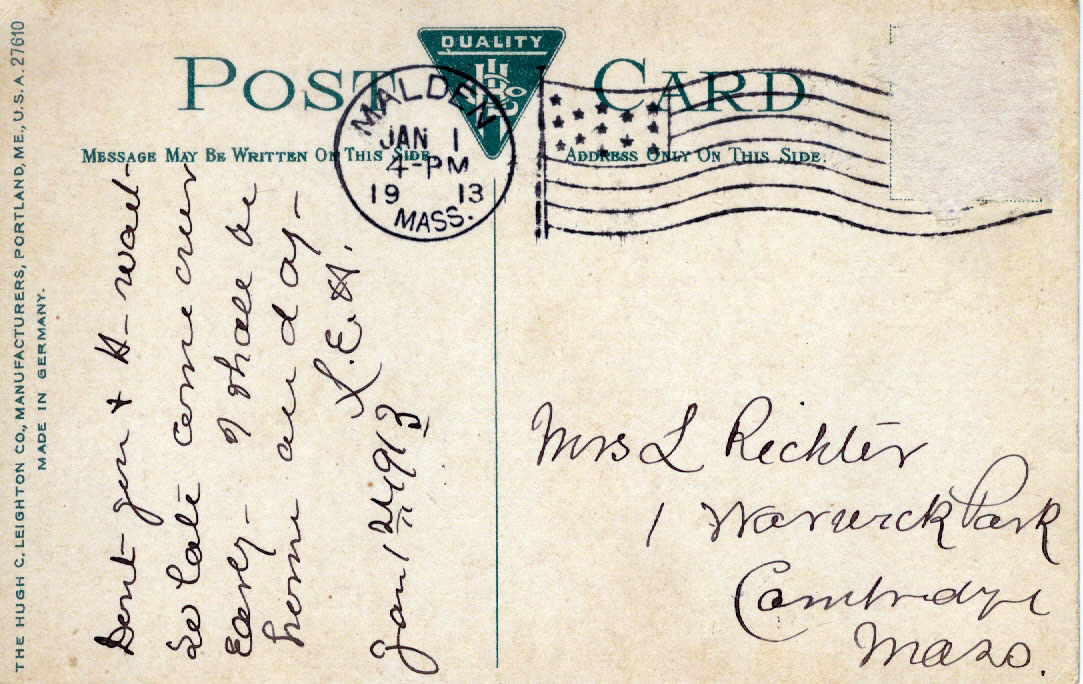 POST CARD
QUALITY
MESSAGE MAY BE WRITTEN ON THIS SIDE
ADDRESS ONLY ON THIS SIDE.
MALDEN
JAN 1
4-PM
19 13
MASS.
THE HUGH C. LEIGHTON CO., MANUFACTURERS, PORTLAND, ME., U.S.A. 27610
MADE IN GERMANY.
Dont you & H- wait
so late come over
Early- I shall be
home all day-
L.E.H.
Jan 1 1913
Mrs L Richter
1 Warwick Park
Cambridge
Mass.